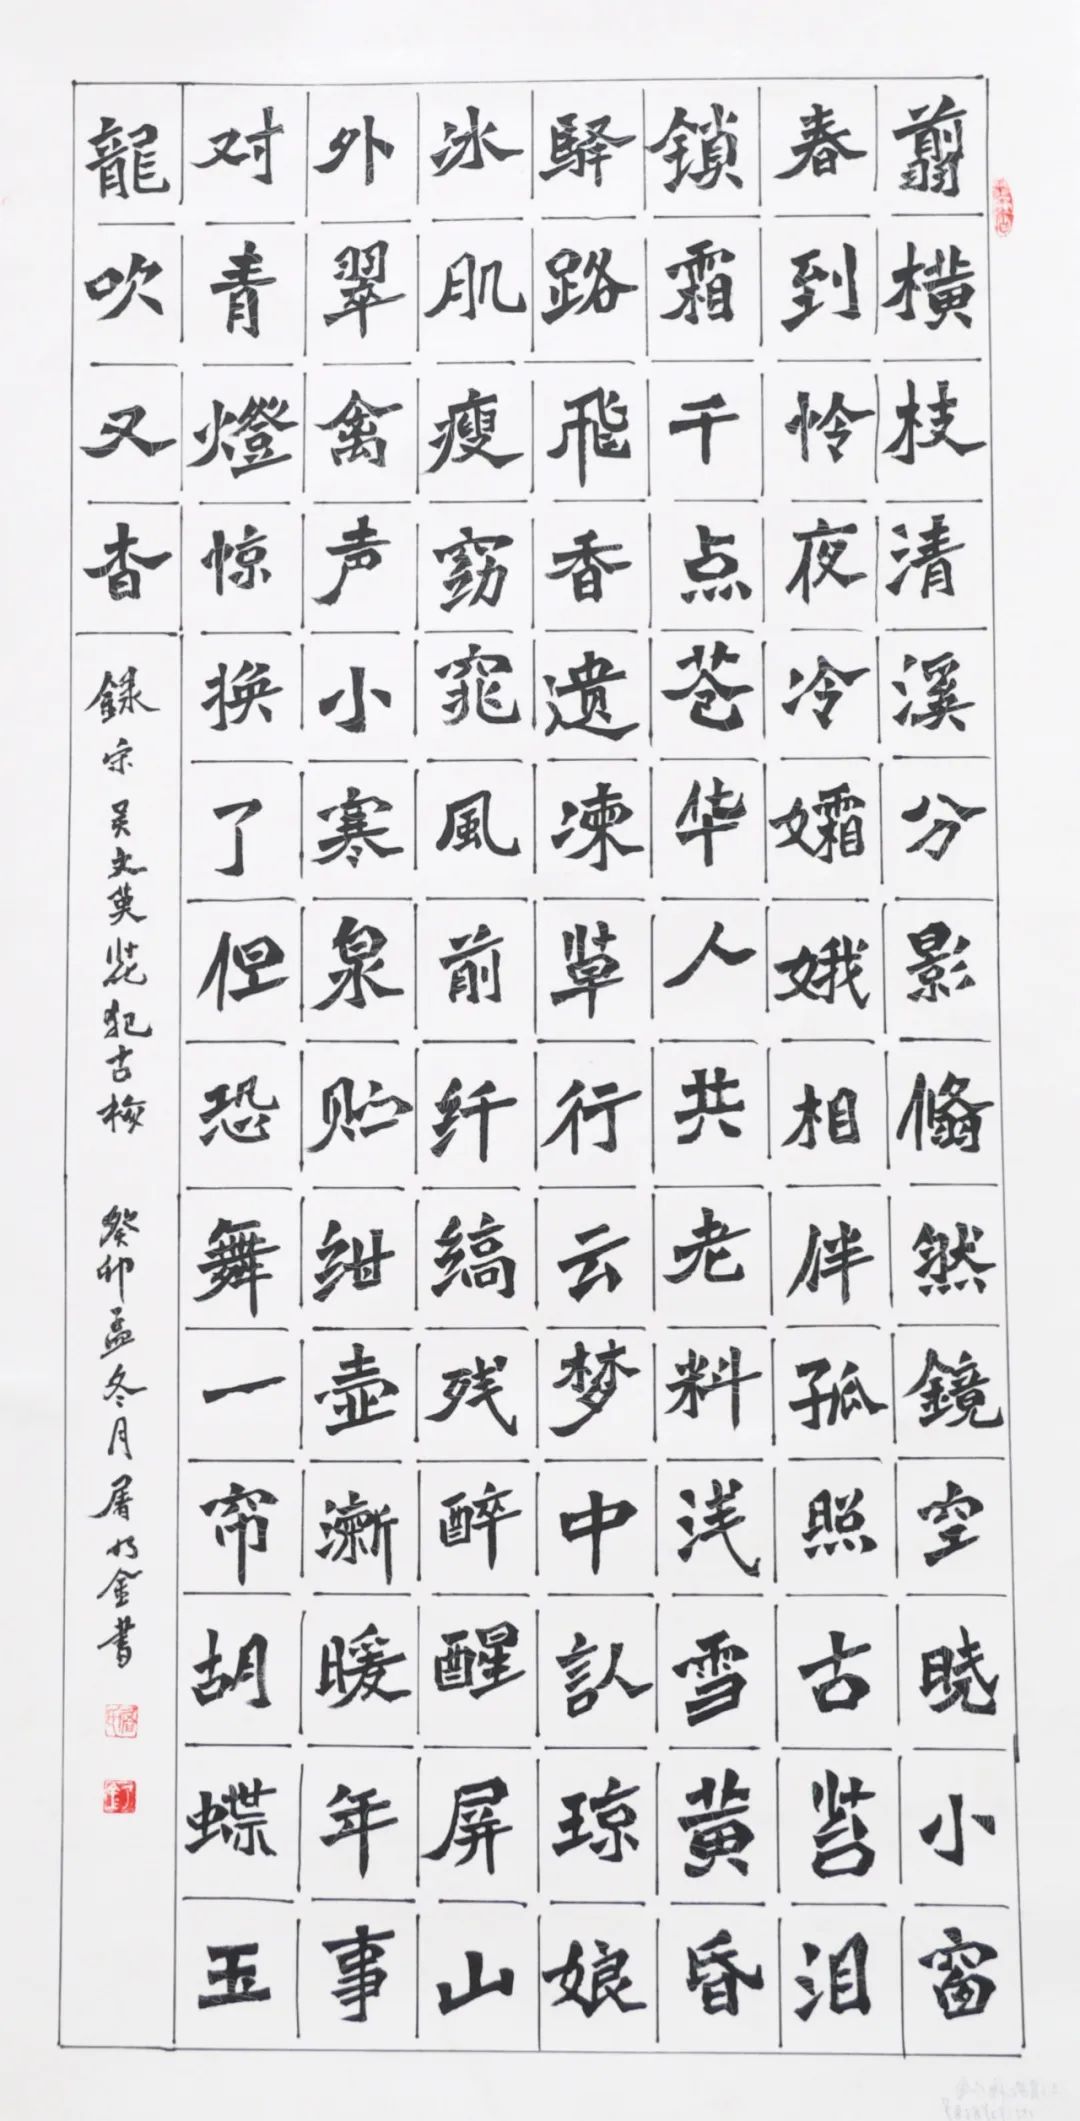 翦横枝清溪分影翛然鏡空晓小窗
春到怜夜冷孀娥相伴孤照古苔泪
鎖霜千点苍华人共老料浅雪黄昏
驿路飛香遗凍草行云梦中認琼娘
冰肌瘦窈窕風前纤缟残醉醒屏山
外翠禽声小寒泉贮绀壶漸暖年事
对青燈惊换了但恐舞一帘胡蝶玉
龍吹又杳
録宋吴文英花犯古梅
癸卯孟冬月屠金書